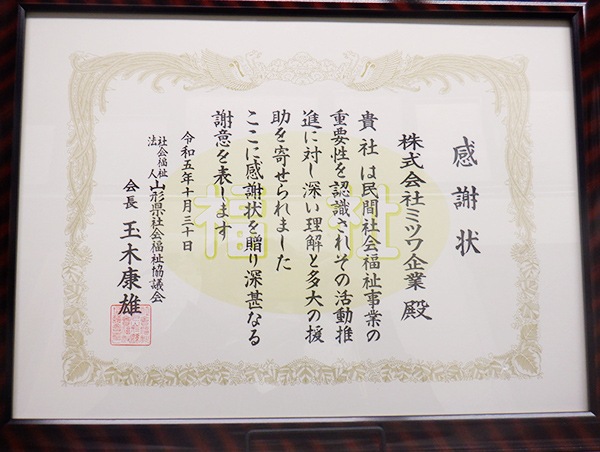 感謝状
株式会社ミツワ企業 殿
貴社は民間社会福祉事業の
重要性を認識されその活動推
進に対し深い理解と多大の援
助を寄せられました
ここに感謝状を贈り深甚なる
謝意を表します
令和五年十月三十日
社会福祉法人 山形県社会福祉協議会
会長 玉木康雄
福祉